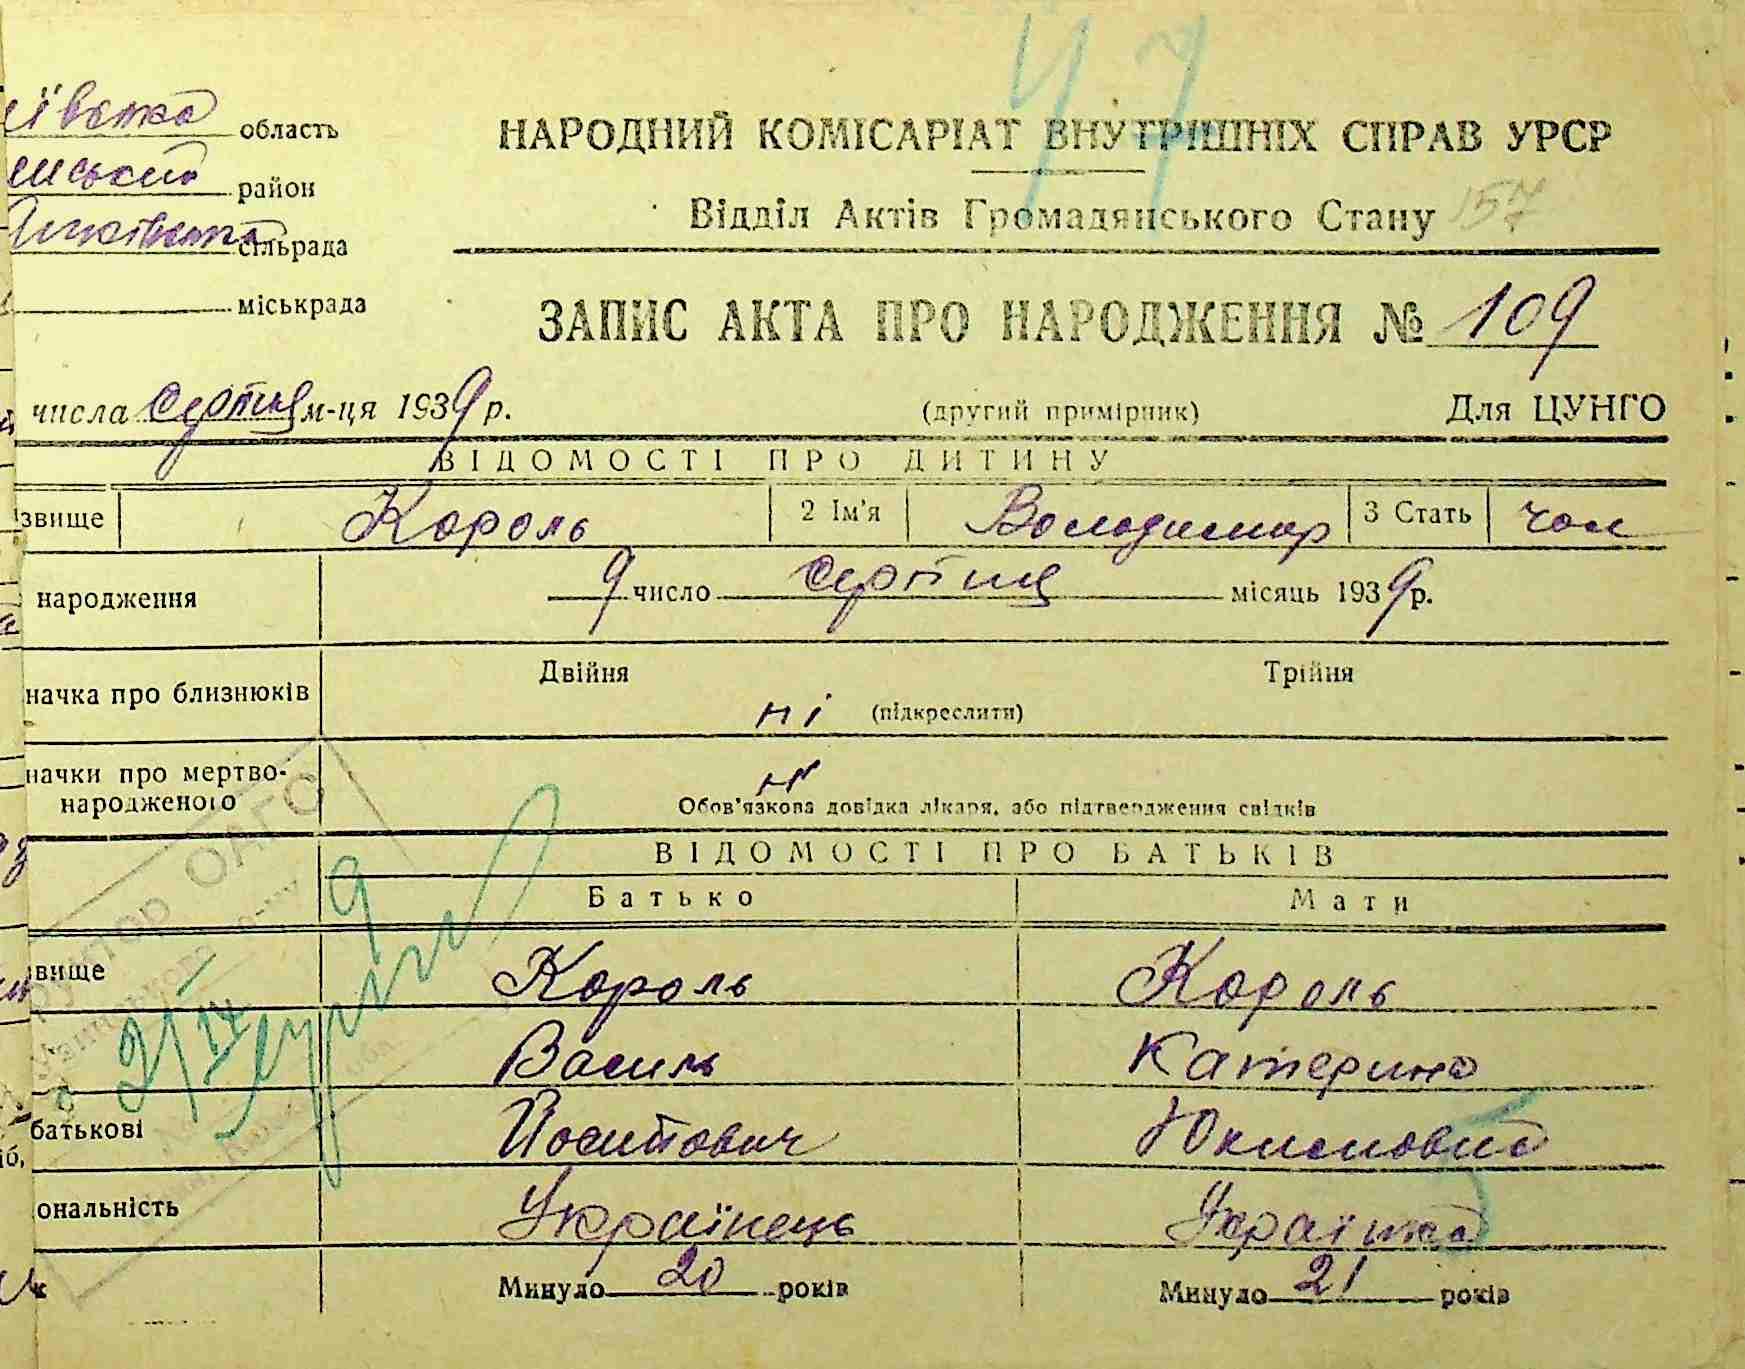 47
ївська область
НАРОДНИЙ КОМІСАРІАТ ВНУТРІШНІХ СПРАВ УРСР
нський район
Відділ Актів Громадянського Стану 157
сільрада
міськрада
ЗАПИС АКТА ПРО НАРОДЖЕННЯ № 109
числа серпня м-ця 1939 р.
(другий примірник)
Для ЦУНГО
ВІДОМОСТІ ПРО ДИТИНУ
звище Король 2 Ім'я Володимир 3 Стать чол
народження 9 число серпня місяць 1939 р.
Двійня Трійня
начка про близнюків
ні (підкреслити)
начки про мертво-
народженого
ні
Обов'язкова довідка лікаря, або підтвердження свідків
ВІДОМОСТІ ПРО БАТЬКІВ
Батько Мати
звище Король Король
Василь Катерина
батькові Йосипович Юхимовна
ональність Українець Українка
к Минуло 20 років Минуло 21 років